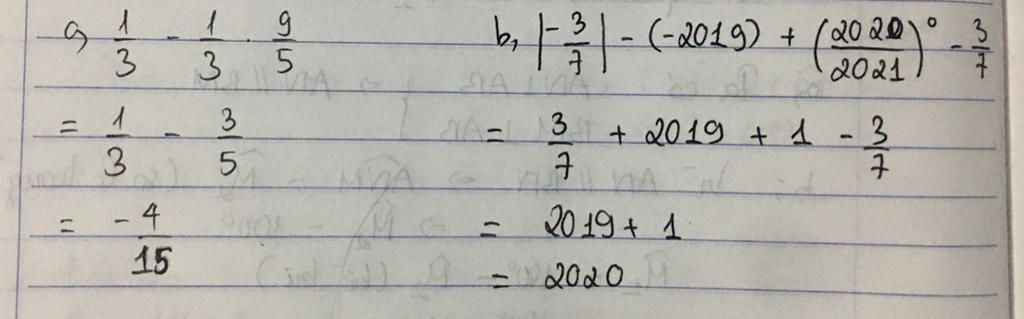 a, 1/3 - 1/3 . 9/5
= 1/3 - 3/5
= -4/15
b, |-3/7| - (-2019) + (2020/2021)⁰ - 3/7
= 3/7 + 2019 + 1 - 3/7
= 2019 + 1
= 2020